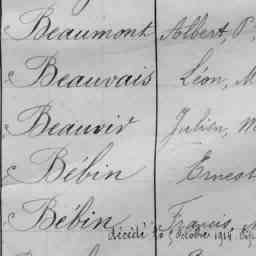 Beaumont Albert, P
Beauvais Léon, M
Beauvir Julien, M
Bébin Ernest
Bébin Francis
décédé octobre 1914.